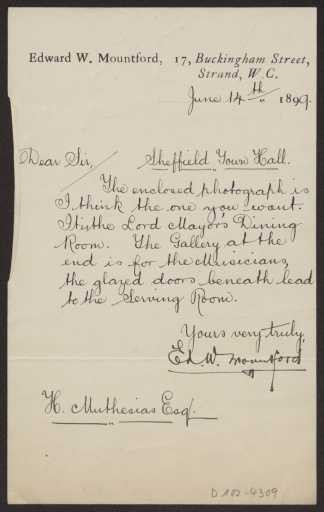 Edward W. Mountford, 17, Buckingham Street,
Strand, W.C.
June 14th 1899.
Dear Sir,
Sheffield Town Hall.
The enclosed photograph is
I think the one you want.
It is the Lord Mayor's Dining
Room. The Gallery at the
end is for the Musicians,
the glazed doors beneath lead
to the Serving Room.
Yours very truly,
Ed. W. Mountford
H. Muthesias Esq.
D 102-4309